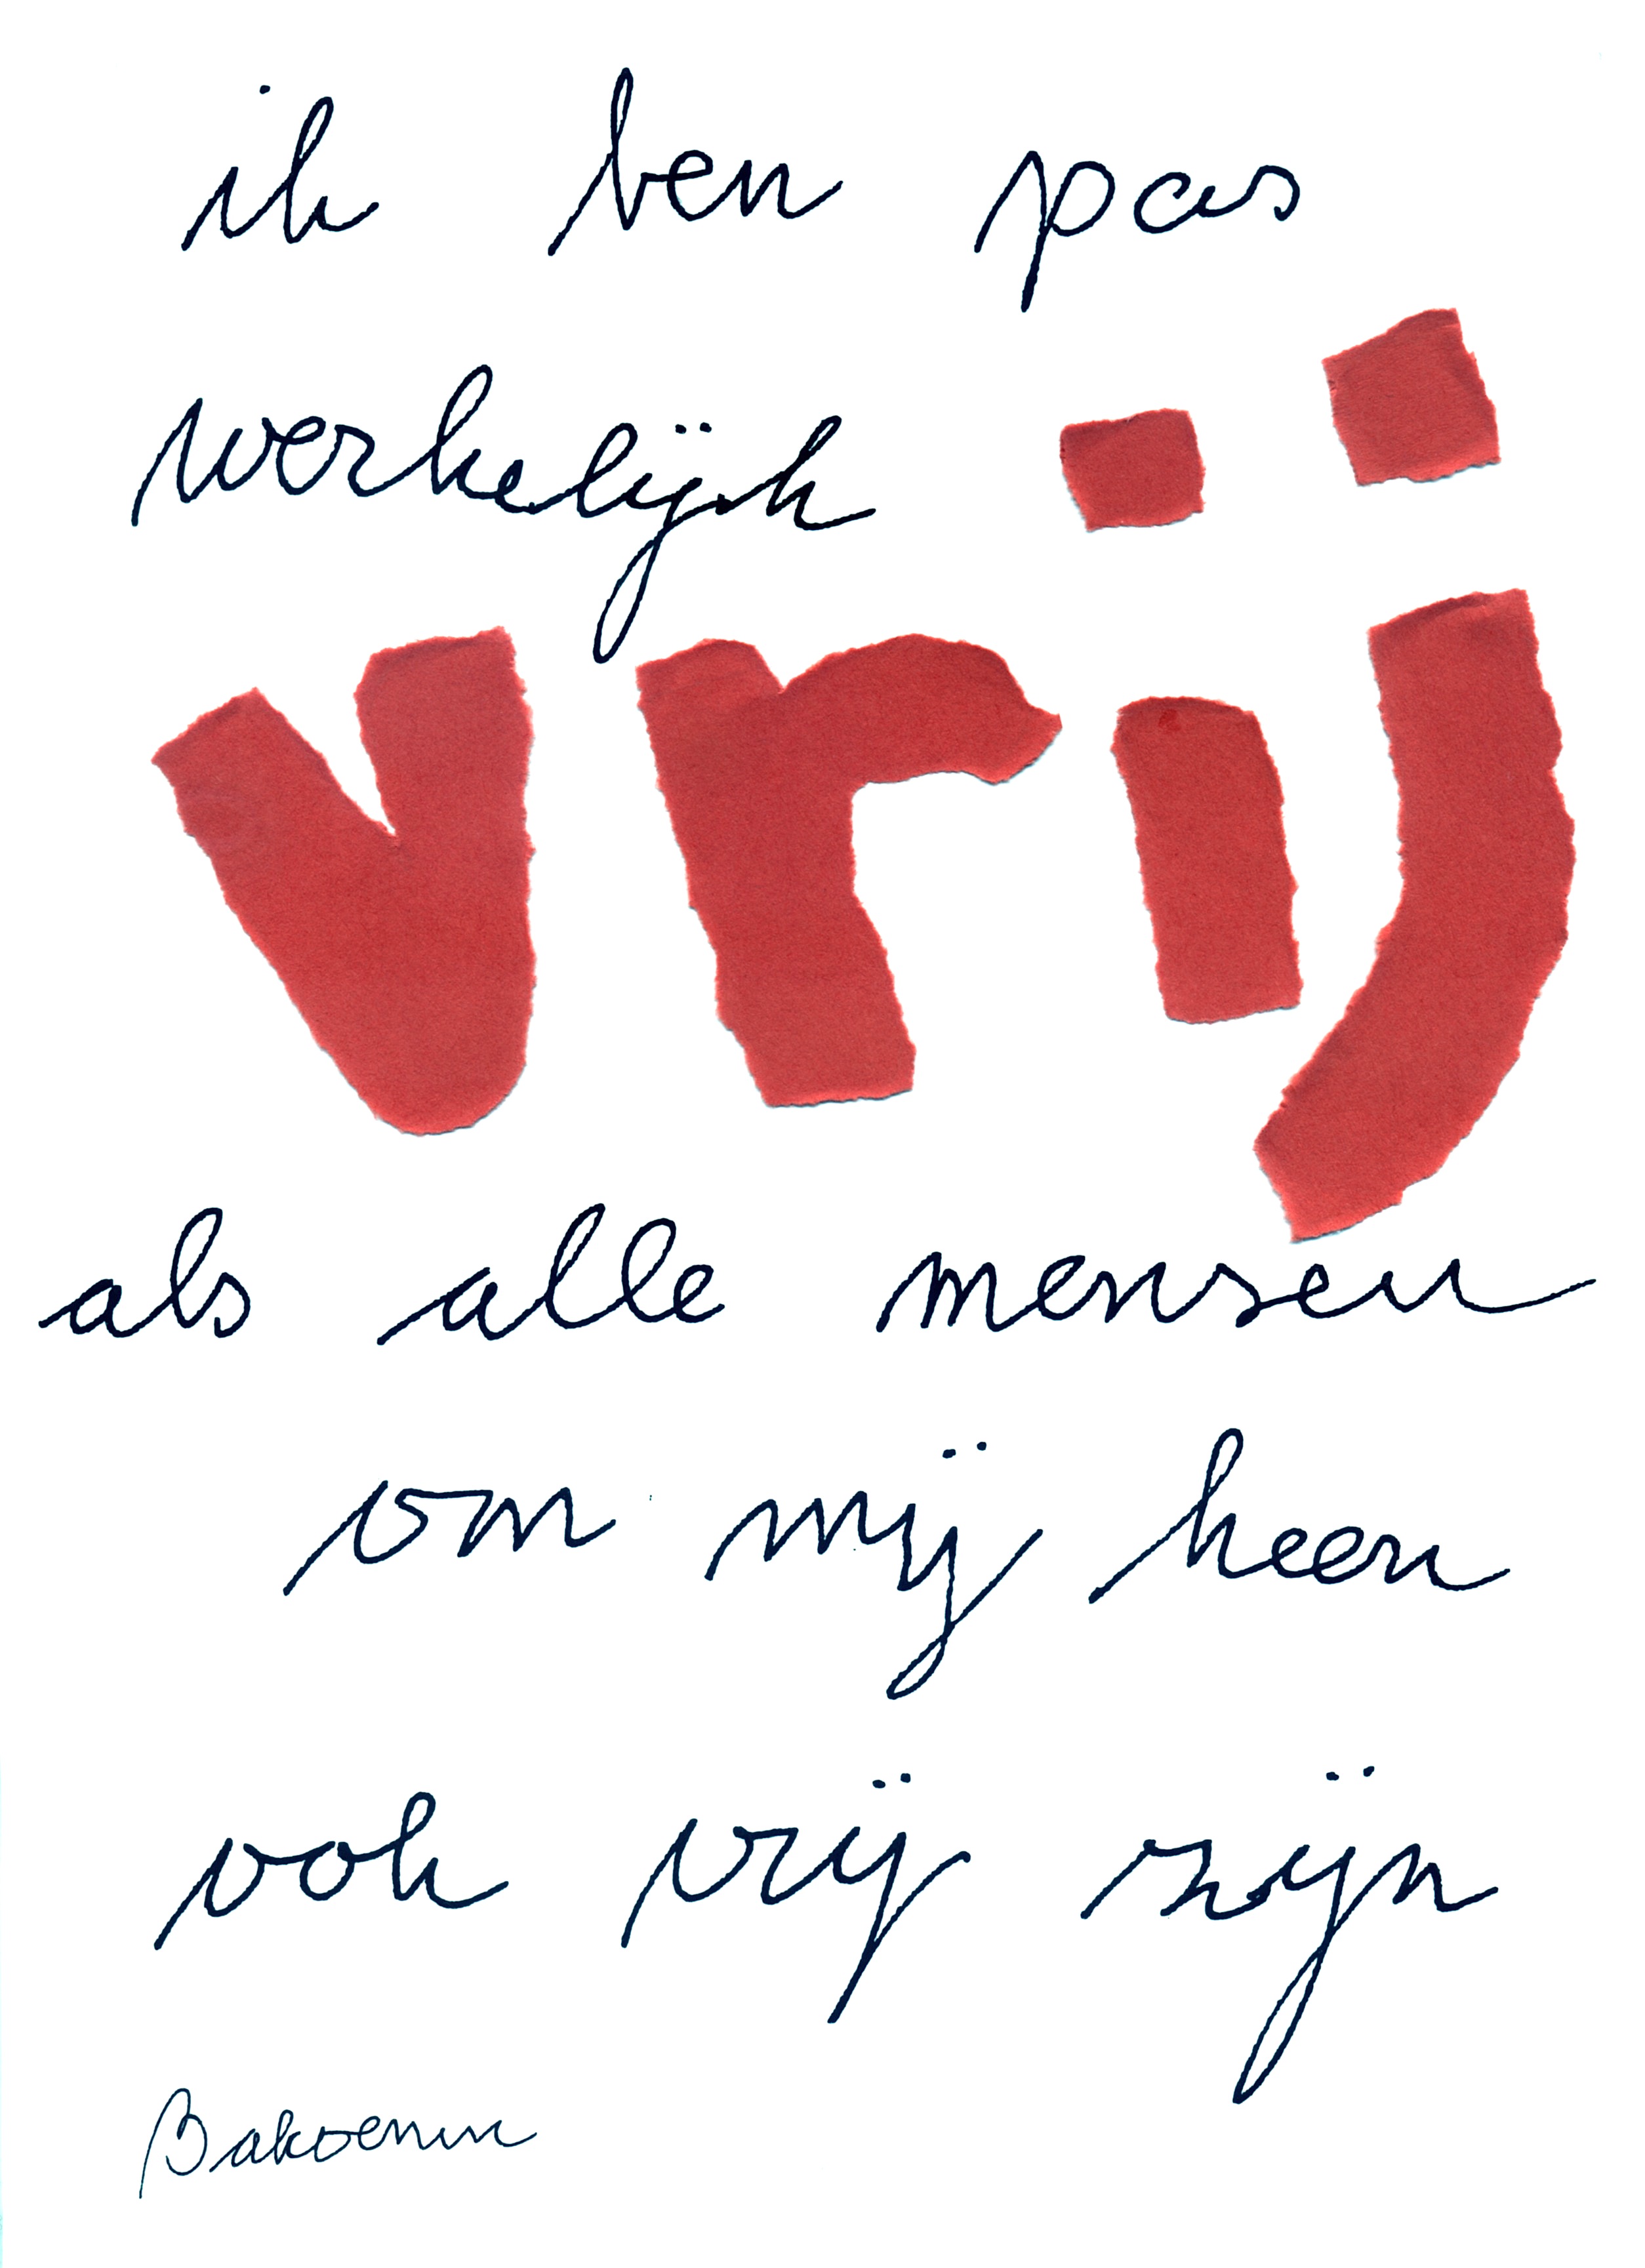 ik ben pas
werkelijk
vrij
als alle mensen
om mij heen
ook vrij zijn
Bakoenin